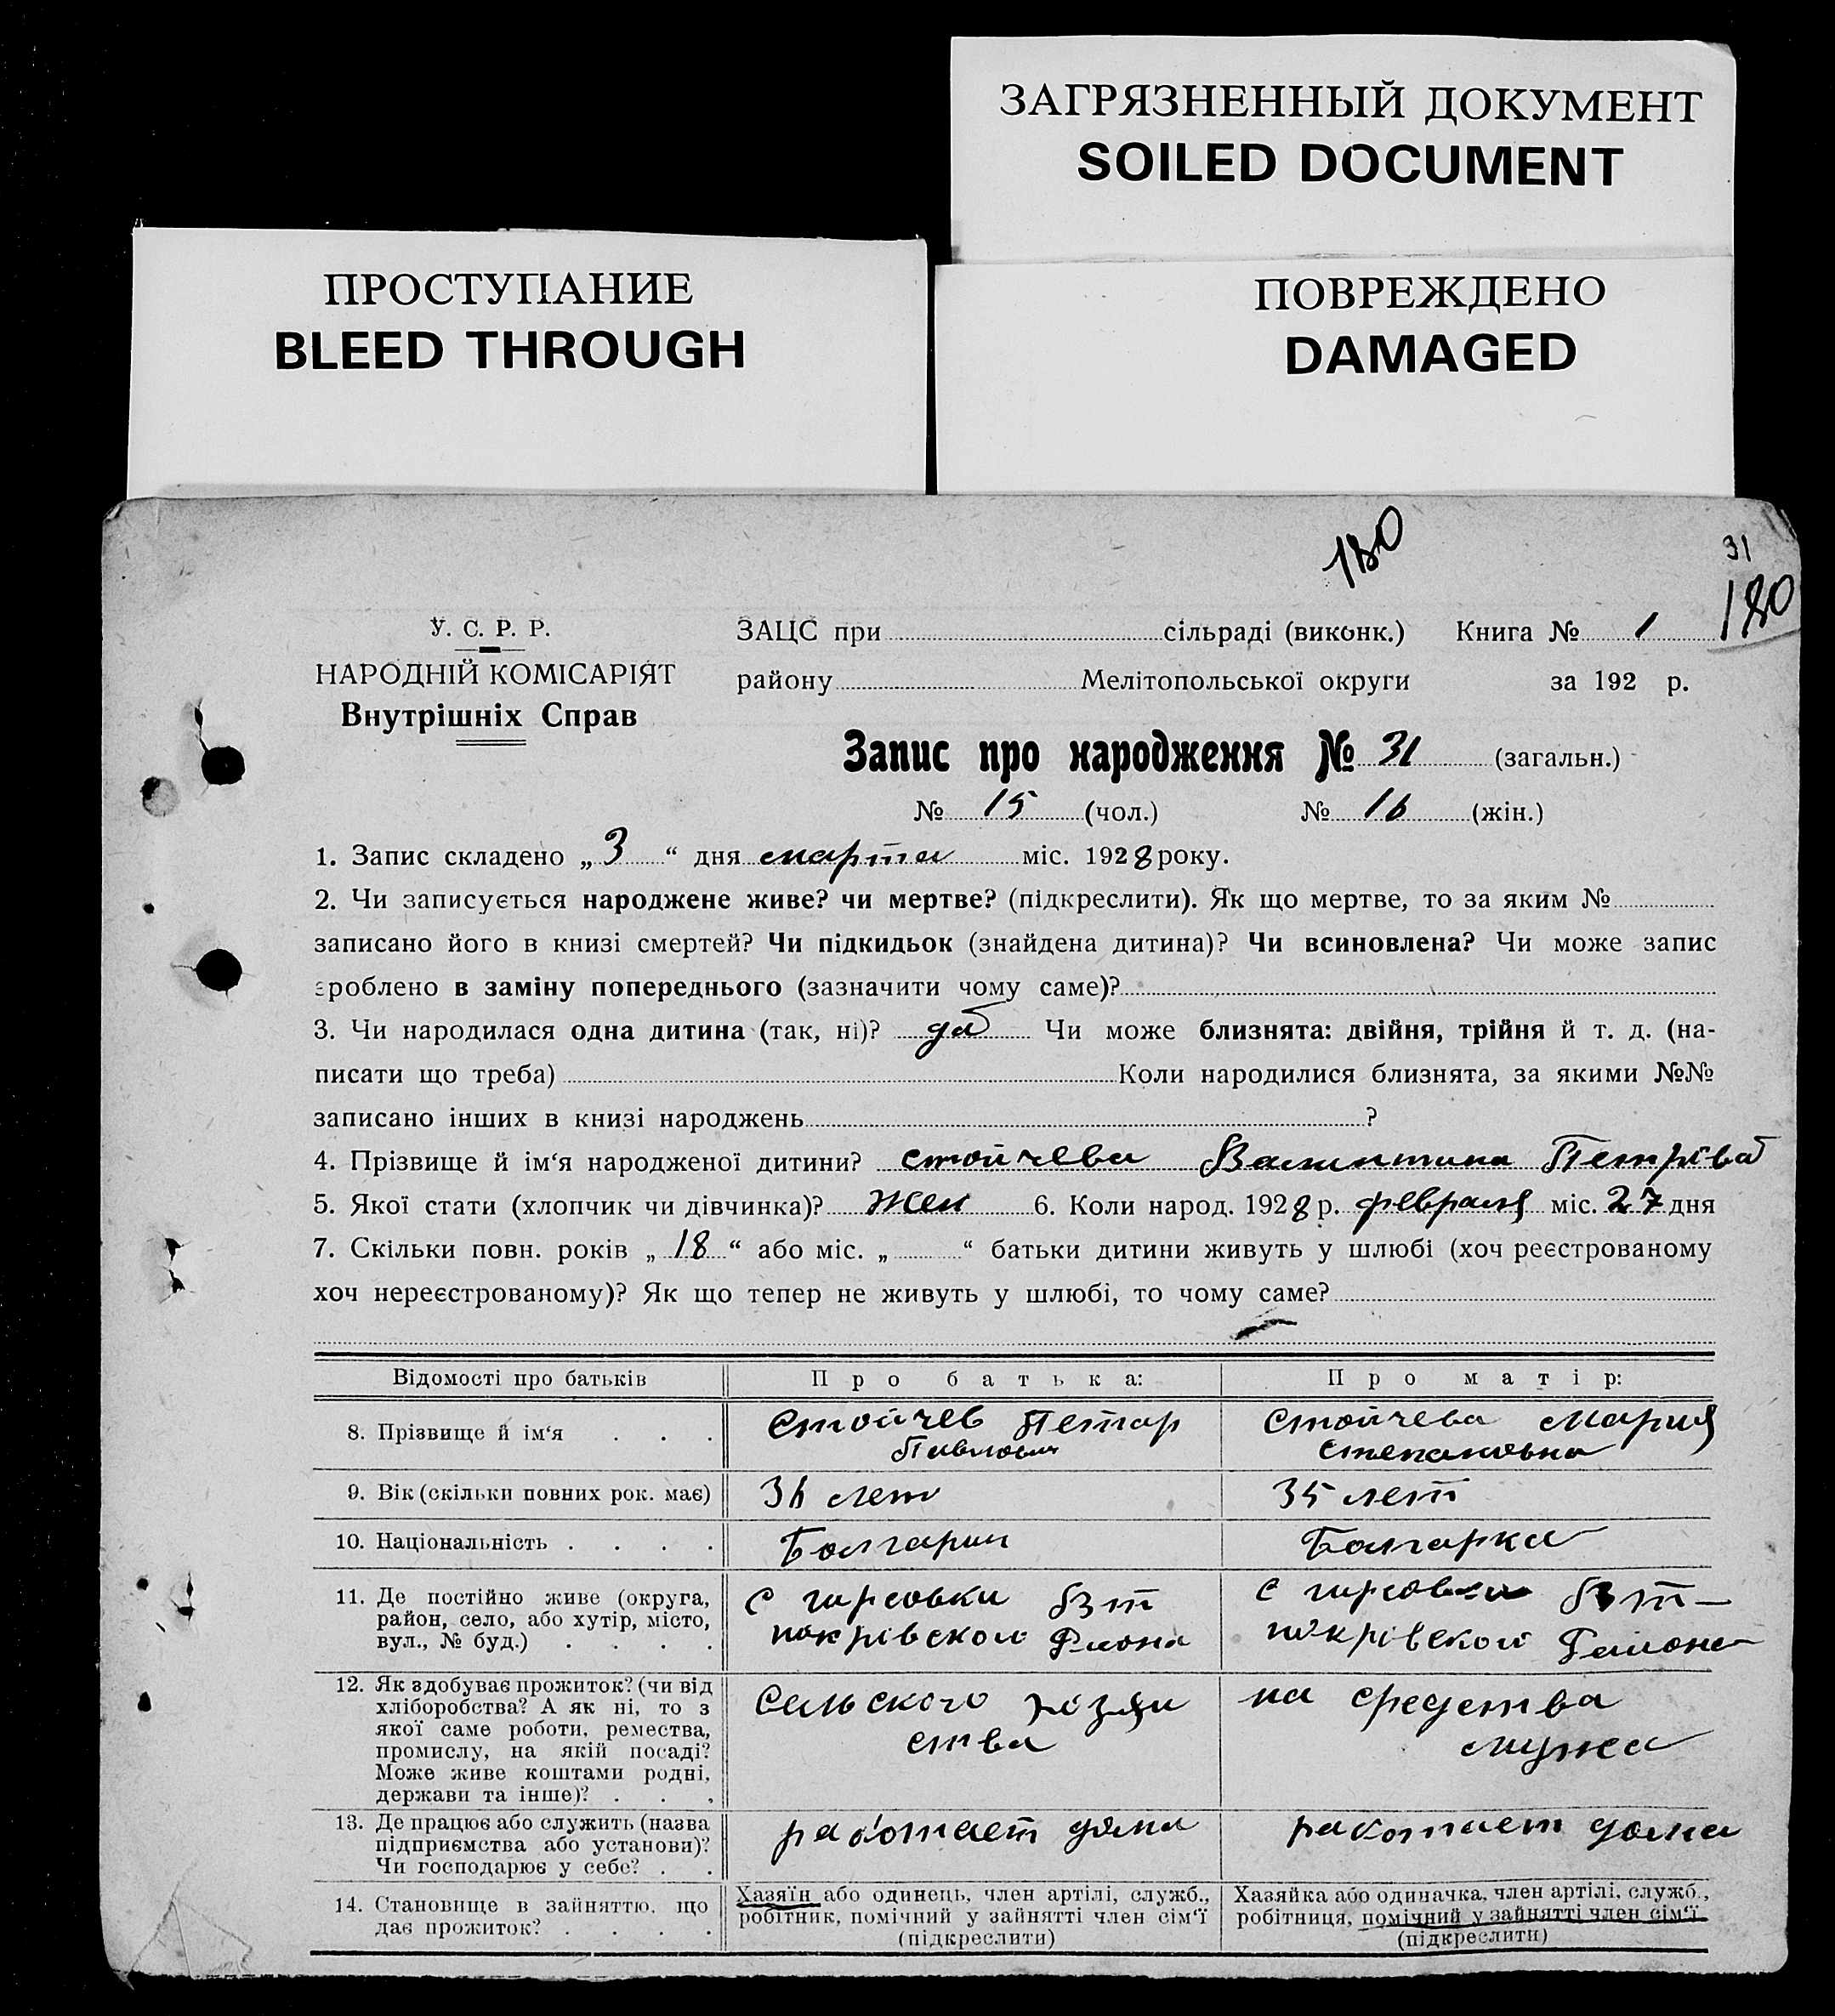 ЗАГРЯЗНЕННЫЙ ДОКУМЕНТ
SOILED DOCUMENT
ПРОСТУПАНИЕ
BLEED THROUGH
ПОВРЕЖДЕНО
DAMAGED
180
31
180
У. С. Р. Р.
НАРОДНІЙ КОМІСАРІЯТ
Внутрішніх Справ
ЗАЦС при сільраді (виконк.) Книга № 1
району Мелітопольської округи за 192 р.
Запис про народження № 31 (загальн.)
№ 15 (чол.) № 16 (жін.)
1. Запис складено „3“ дня марта міс. 1928 року.
2. Чи записується народжене живе? чи мертве? (підкреслити). Як що мертве, то за яким №
записано його в книзі смертей? Чи підкидьок (знайдена дитина)? Чи всиновлена? Чи може запис
зроблено в заміну попереднього (зазначити чому саме)?
3. Чи народилася одна дитина (так, ні)? да Чи може близнята: двійня, трійня й т. д. (на-
писати що треба) Коли народилися близнята, за якими №№
записано інших в книзі народжень ?
4. Прізвище й ім‘я народженої дитини? Стойчева Валинтина Петріва
5. Якої стати (хлопчик чи дівчинка)? Жен 6. Коли народ. 1928 р. февраля міс. 27 дня
7. Скільки повн. років „18“ або міс. „ “ батьки дитини живуть у шлюбі (хоч реєстрованому
хоч нереєстрованому)? Як що тепер не живуть у шлюбі, то чому саме?
Відомості про батьків Про батька: Про матір:
8. Прізвище й ім‘я . . . Стойчев Петар Павлович Стойчева Мария Степановна
9. Вік (скільки повних рок. має) 36 лет 35 лет
10. Національність . . . . Болгарин Болгарка
11. Де постійно живе (округа,
район, село, або хутір, місто,
вул., № буд.) . . . .
с гирсовки
покрівского
с гирсовки
покрівского
12. Як здобуває прожиток? (чи від
хліборобства? А як ні, то з
якої саме роботи, ремества,
промислу, на якій посаді?
Може живе коштами родні,
держави та інше)? . . .
Сельского хозяи
ства
на средства
мужа
13. Де працює або служить (назва
підприємства або установи)?
Чи господарює у себе? . .
работает дома
работает дома
14. Становище в зайняттю, що
дає прожиток? . . . .
Хазяїн або одинець, член артілі, служб.,
робітник, помічний у зайнятті член сім‘ї
(підкреслити)
Хазяйка або одиначка, член артілі, служб.,
робітниця, помічний у зайнятті член сім‘ї
(підкреслити)